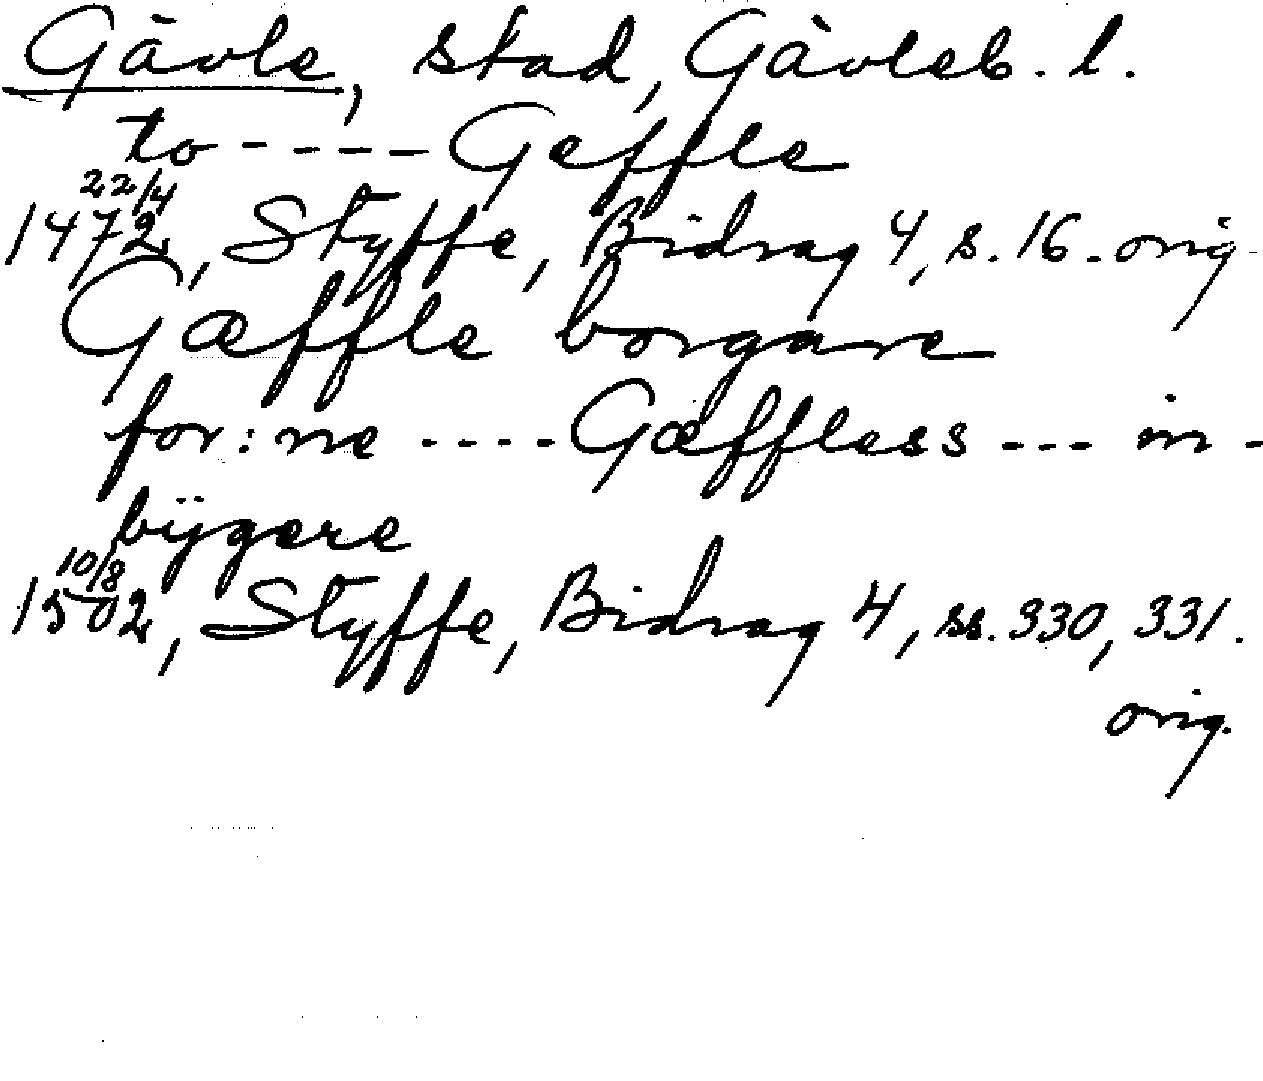 Gävle, stad, Gävleb. l.
to - - - - Geffle
22/4
1472, Styffe, Bidrag 4, s. 16. orig
Gæffle borgare
for: ne - - - - Gæffless - - - in -
bÿgere
10/8
1502, Styffe, Bidrag 4, ss. 330, 331.
orig.